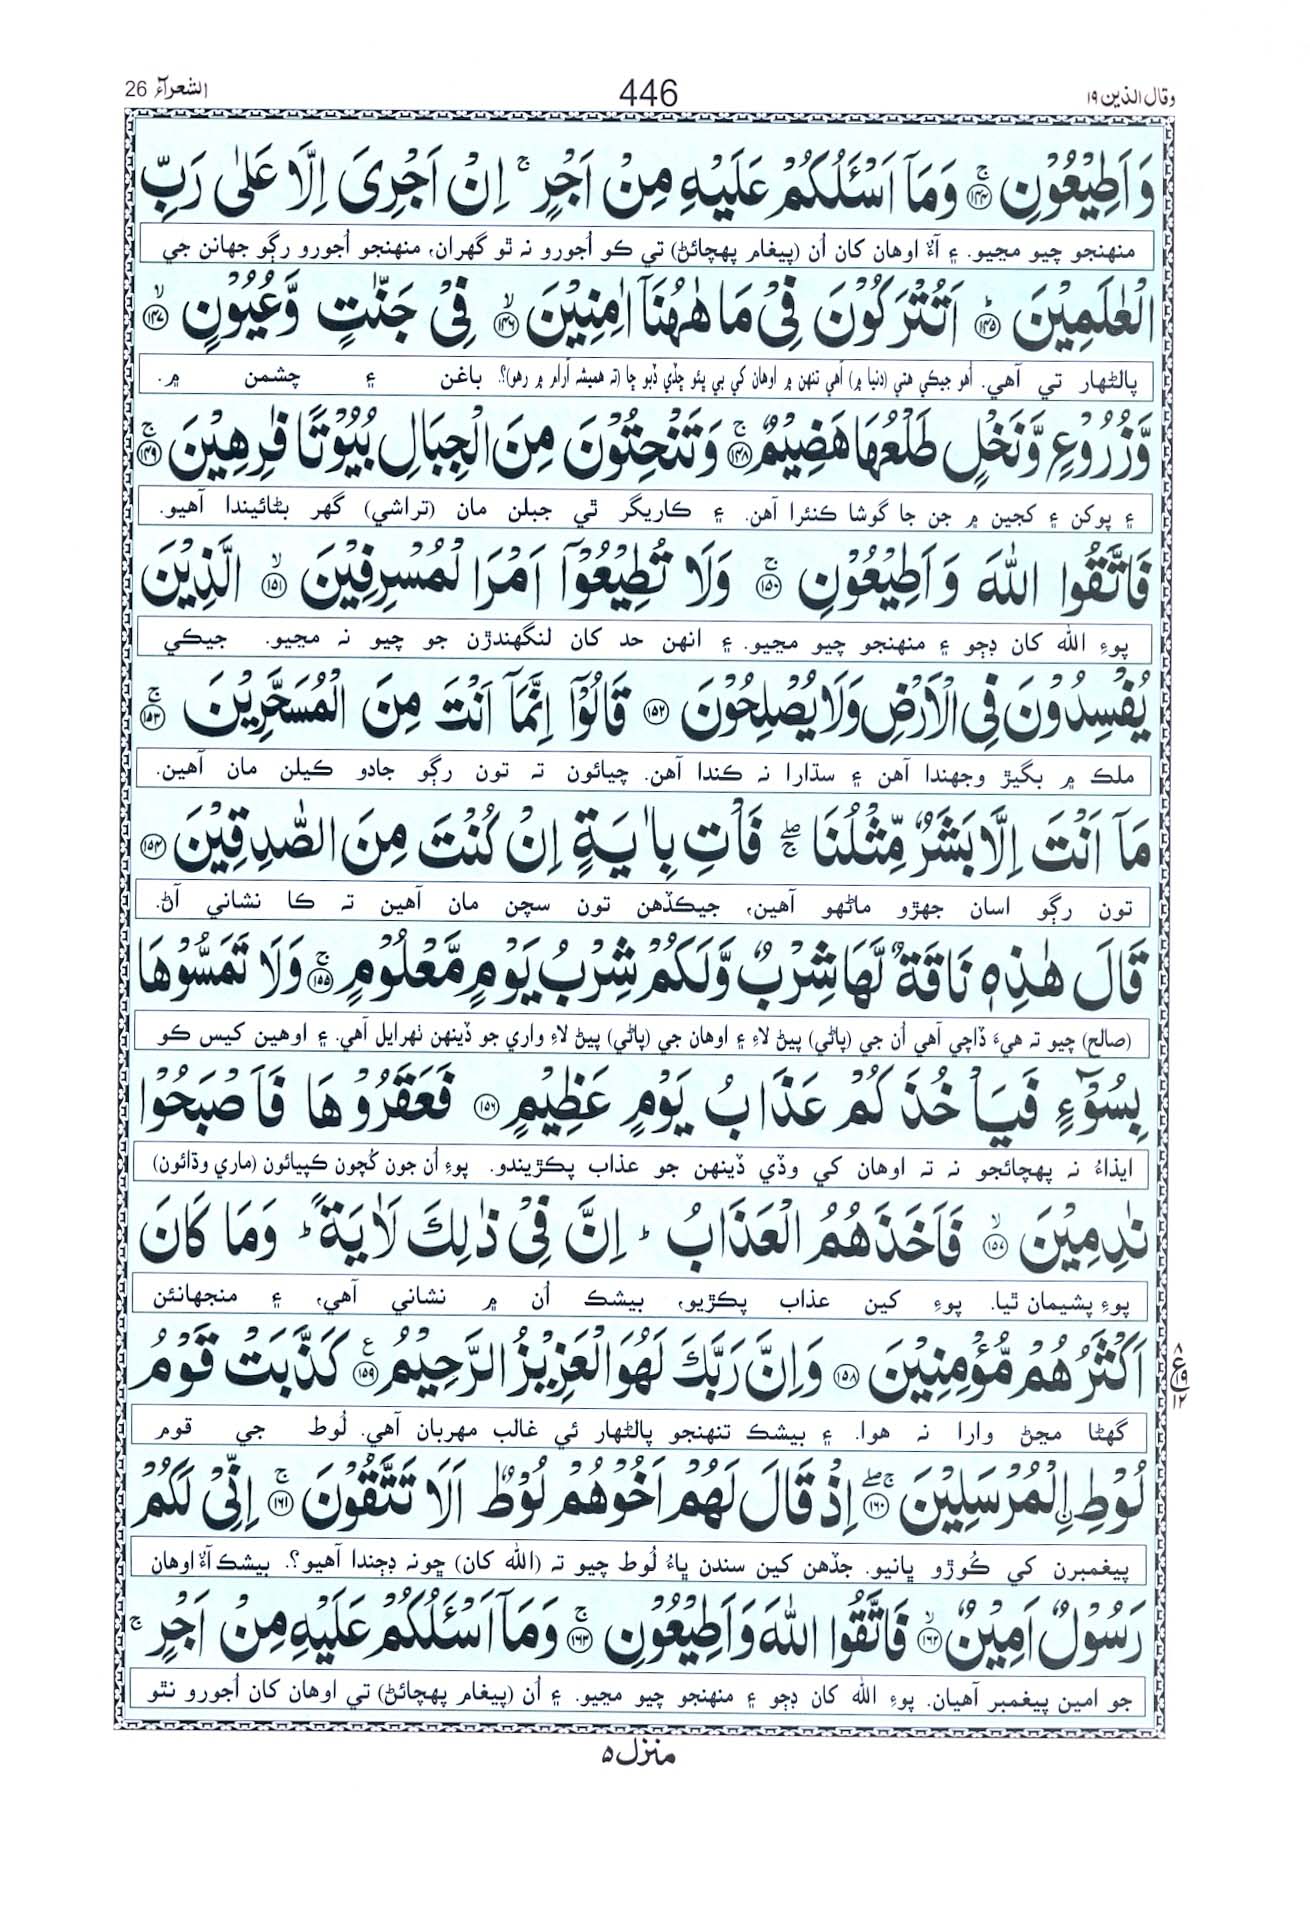 وقال الذين ١٩
446
الشعرآء 26
وَاَطِيْعُوْنِ ۚ‏﴿۱۴۴﴾ وَمَاۤ اَسْـَٔلُكُمْ عَلَيْهِ مِنْ اَجْرٍ ۚ اِنْ اَجْرِىَ اِلَّا عَلٰى رَبِّ
منهنجو چيو مڃيو. ۽ آءٌ اوهان کان اُن (پيغام پهچائڻ) تي ڪو اُجورو نہ ٿو گهران، منهنجو اُجورو رڳو جهانن جي
الْعٰلَمِيْنَ ؕ‏﴿۱۴۵﴾ اَتُتْرَكُوْنَ فِىْ مَا هٰهُنَاۤ اٰمِنِيْنَ ۙ‏﴿۱۴۶﴾ فِىْ جَنّٰتٍ وَّعُيُوْنٍ ۙ‏﴿۱۴۷﴾
پالڻهار تي آهي. اُهو جيڪي هتي (دنيا ۾) آهي تنهن ۾ اوهان کي بي ڀئو ڇڏي ڏبو ڇا (تہ هميشہ آرام ۾ رهو)؟. باغن ۽ چشمن ۾.
وَّزُرُوْعٍ وَّنَخْلٍ طَلْعُهَا هَضِيْمٌ ۚ‏﴿۱۴۸﴾ وَتَنْحِتُوْنَ مِنَ الْجِبَالِ بُيُوْتًا فٰرِهِيْنَ ۚ‏﴿۱۴۹﴾
۽ پوکن ۽ کجين ۾ جن جا گوشا ڪنئرا آهن. ۽ ڪاريگر ٿي جبلن مان (تراشي) گهر بڻائيندا آهيو.
فَاتَّقُوا اللّٰهَ وَاَطِيْعُوْنِ ۚ‏﴿۱۵۰﴾ وَلَا تُطِيْعُوْۤا اَمْرَ الْمُسْرِفِيْنَ ۙ‏﴿۱۵۱﴾ الَّذِيْنَ
پوءِ الله کان ڊڄو ۽ منهنجو چيو مڃيو. ۽ انهن حد کان لنگهندڙن جو چيو نہ مڃيو. جيڪي
يُفْسِدُوْنَ فِى الْاَرْضِ وَلَا يُصْلِحُوْنَ ‏﴿۱۵۲﴾ قَالُوْۤا اِنَّمَاۤ اَنْتَ مِنَ الْمُسَحَّرِيْنَ ۚ‏﴿۱۵۳﴾
ملڪ ۾ بگيڙ وجهندا آهن ۽ سڌارا نہ ڪندا آهن. چيائون تہ تون رڳو جادو ڪيلن مان آهين.
مَاۤ اَنْتَ اِلَّا بَشَرٌ مِّثْلُنَا ۖۚ فَاْتِ بِاٰيَةٍ اِنْ كُنْتَ مِنَ الصّٰدِقِيْنَ ‏﴿۱۵۴﴾
تون رڳو اسان جهڙو ماڻهو آهين، جيڪڏهن تون سچن مان آهين تہ ڪا نشاني آڻ.
قَالَ هٰذِهٖ نَاقَةٌ لَّهَا شِرْبٌ وَّلَكُمْ شِرْبُ يَوْمٍ مَّعْلُوْمٍ ۚ‏﴿۱۵۵﴾ وَلَا تَمَسُّوْهَا
(صالح) چيو تہ هيءَ ڏاچي آهي اُن جي (پاڻي) پيڻ لاءِ ۽ اوهان جي (پاڻي) پيڻ لاءِ واري جو ڏينهن ٺهرايل آهي. ۽ اوهين کيس ڪو
بِسُوْٓءٍ فَيَاْخُذَكُمْ عَذَابُ يَوْمٍ عَظِيْمٍ ‏﴿۱۵۶﴾ فَعَقَرُوْهَا فَاَصْبَحُوْا
ايذاءُ نہ پهچائجو نہ تہ اوهان کي وڏي ڏينهن جو عذاب پڪڙيندو. پوءِ اُن جون کُچون ڪپيائون (ماري وڌائون)
نٰدِمِيْنَ ۙ‏﴿۱۵۷﴾ فَاَخَذَهُمُ الْعَذَابُ ؕ اِنَّ فِىْ ذٰلِكَ لَاٰيَةً ؕ وَمَا كَانَ
پوءِ پشيمان ٿيا. پوءِ کين عذاب پڪڙيو، بيشڪ اُن ۾ نشاني آهي، ۽ منجهانئن
اَكْثَرُهُمْ مُّؤْمِنِيْنَ ‏﴿۱۵۸﴾ وَاِنَّ رَبَّكَ لَهُوَ الْعَزِيْزُ الرَّحِيْمُ ‏﴿۱۵۹﴾ كَذَّبَتْ قَوْمُ
ع ٨ ١٩ ١٢
گهڻا مڃڻ وارا نہ هوا. ۽ بيشڪ تنهنجو پالڻهار ئي غالب مهربان آهي. لُوط جي قوم
لُوْطِ ۨالْمُرْسَلِيْنَ ۖۚ‏﴿۱۶۰﴾ اِذْ قَالَ لَهُمْ اَخُوْهُمْ لُوْطٌ اَلَا تَتَّقُوْنَ ۚ‏﴿۱۶۱﴾ اِنِّىْ لَكُمْ
پيغمبرن کي ڪُوڙو ڀانيو. جڏهن کين سندن ڀاءُ لُوط چيو تہ (الله کان) ڇونہ ڊڄندا آهيو؟. بيشڪ آءٌ اوهان
رَسُوْلٌ اَمِيْنٌ ۙ‏﴿۱۶۲﴾ فَاتَّقُوا اللّٰهَ وَاَطِيْعُوْنِ ۚ‏﴿۱۶۳﴾ وَمَاۤ اَسْـَٔلُكُمْ عَلَيْهِ مِنْ اَجْرٍ ۚ
جو امين پيغمبر آهيان. پوءِ الله کان ڊڄو ۽ منهنجو چيو مڃيو. ۽ اُن (پيغام پهچائڻ) تي اوهان کان اُجورو نٿو
منزل ۵